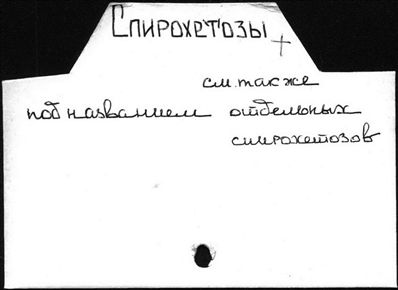 Спирохетозы +
см. также
под названием отдельных
спирохетозов